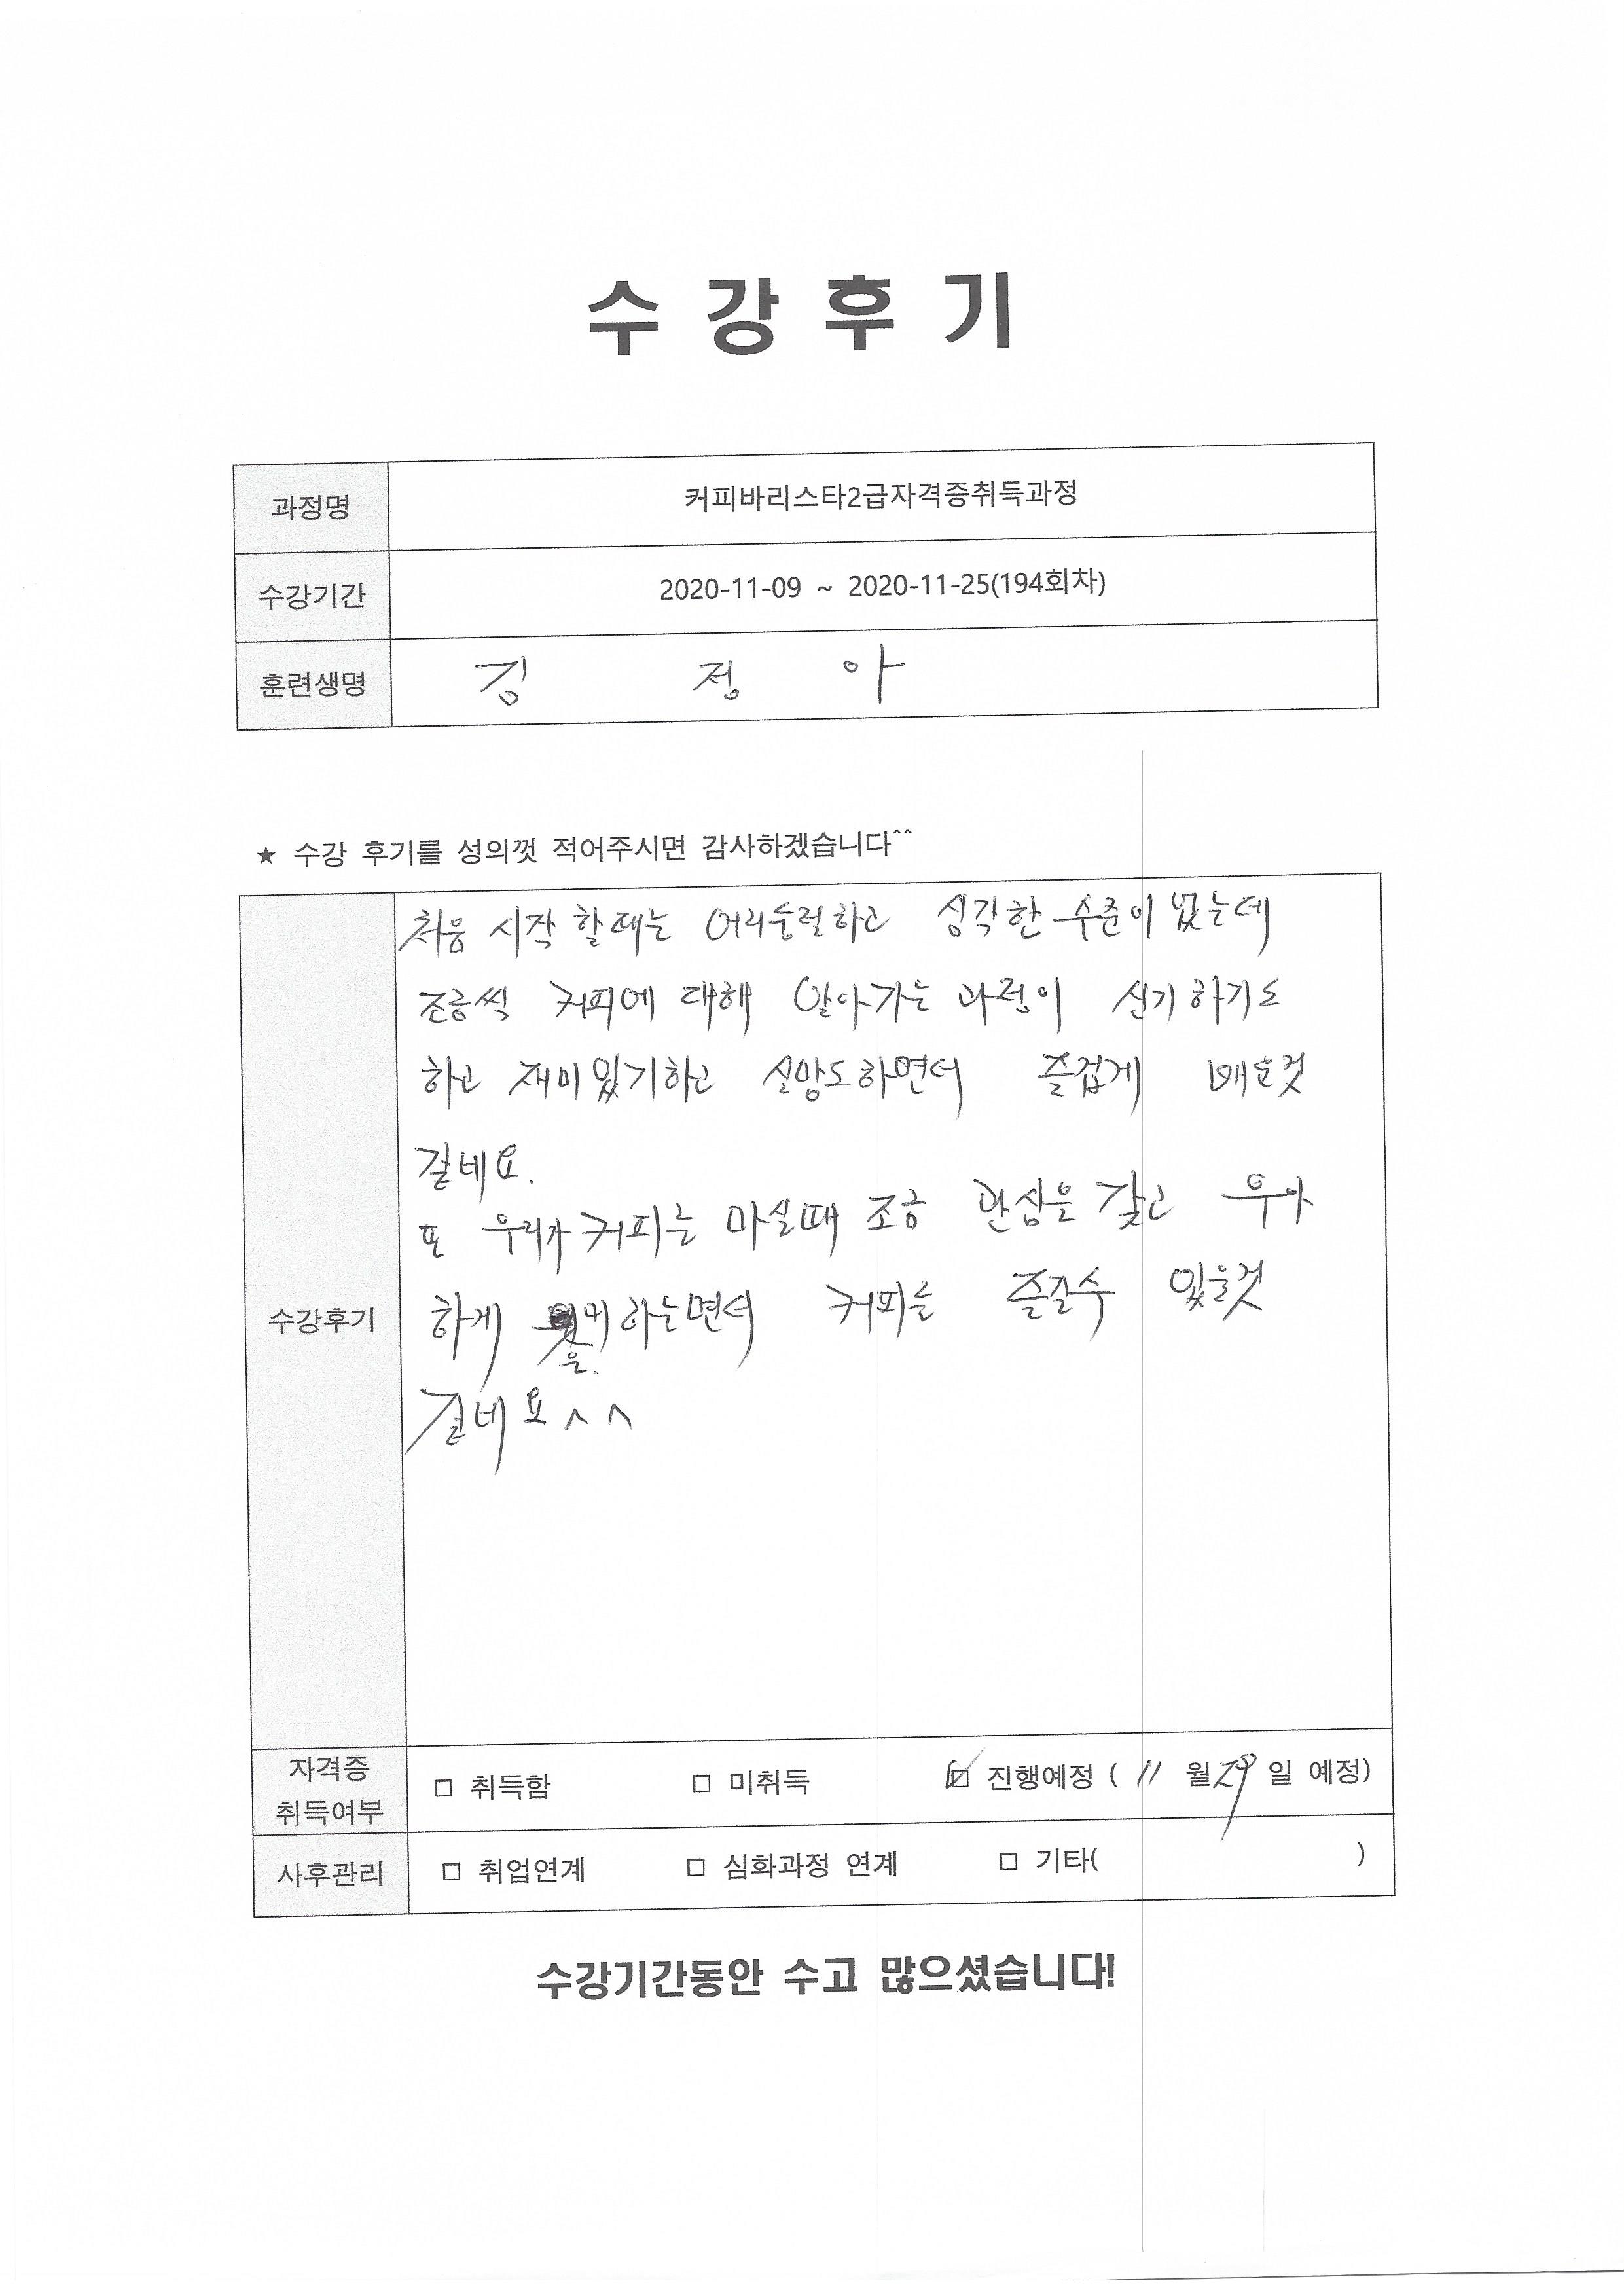 수강후기
과정명 커피바리스타2급자격증취득과정
수강기간 2020-11-09 ~ 2020-11-25(194회차)
훈련생명 김 정 아
★ 수강 후기를 성의껏 적어주시면 감사하겠습니다^^
처음 시작 할때는 어리둥절하고 심각한 수준이 였는데
조금씩 커피에 대해 알아가는 과정이 신기하기도
하고 재미있기하고 실망도하면서 즐겁게 배운것
같네요.
또 우리가 커피는 마실때 조금 관심을 갖고 우아
수강후기
하게 하는면서 커피를 즐길수 있을것
을.
같네요^^
자격증 취득여부 □ 취득함 □ 미취득 ☑ 진행예정 ( 11 월 29 일 예정)
사후관리 □ 취업연계 □ 심화과정 연계 □ 기타( )
수강기간동안 수고 많으셨습니다!